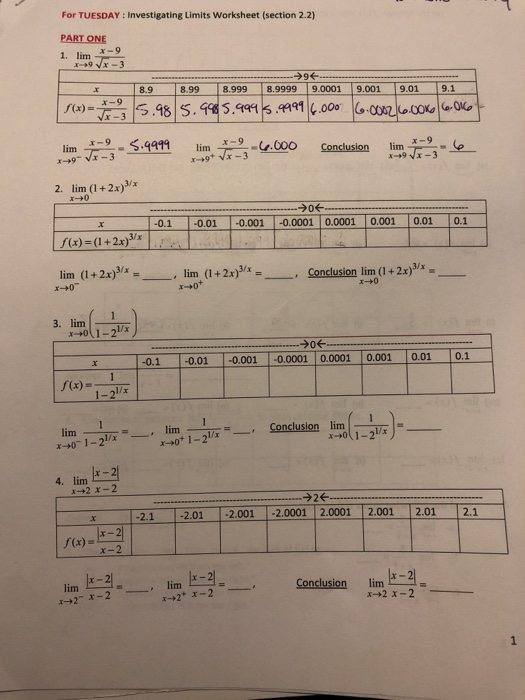 For TUESDAY : Investigating Limits Worksheet (section 2.2)
PART ONE
1. lim x→9 (x−9)/(√x −3)
→9←
x 8.9 8.99 8.999 8.9999 9.0001 9.001 9.01 9.1
f(x) = (x−9)/(√x −3) 5.98 5.998 5.999 5.9999 6.000 6.0002 6.0016 6.016
lim x→9⁻ (x−9)/(√x −3) = 5.9999 lim x→9⁺ (x−9)/(√x −3) = 6.000 Conclusion lim x→9 (x−9)/(√x −3) = 6
2. lim x→0 (1+2x)^(3/x)
→0←
x -0.1 -0.01 -0.001 -0.0001 0.0001 0.001 0.01 0.1
f(x) = (1+2x)^(3/x)
lim x→0⁻ (1+2x)^(3/x) = ____, lim x→0⁺ (1+2x)^(3/x) = ____, Conclusion lim x→0 (1+2x)^(3/x) = ____
3. lim x→0 (1/(1−2^(1/x)))
→0←
x -0.1 -0.01 -0.001 -0.0001 0.0001 0.001 0.01 0.1
f(x) = 1/(1−2^(1/x))
lim x→0⁻ 1/(1−2^(1/x)) = ___, lim x→0⁺ 1/(1−2^(1/x)) = ___, Conclusion lim x→0 (1/(1−2^(1/x))) = ____
4. lim x→2 |x−2|/(x−2)
→2←
x -2.1 -2.01 -2.001 -2.0001 2.0001 2.001 2.01 2.1
f(x) = |x−2|/(x−2)
lim x→2⁻ |x−2|/(x−2) = ___, lim x→2⁺ |x−2|/(x−2) = ___, Conclusion lim x→2 |x−2|/(x−2) = ____
1